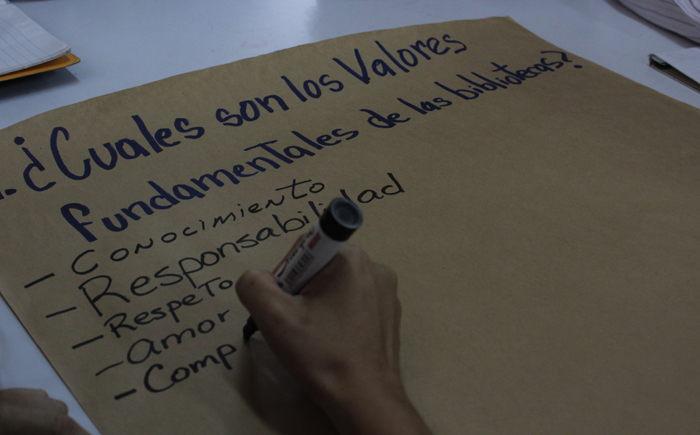 ¿Cuales son los Valores
fundamentales de las bibliotecas?
- Conocimiento
- Responsabilidad
- Respeto
- amor
- Comp